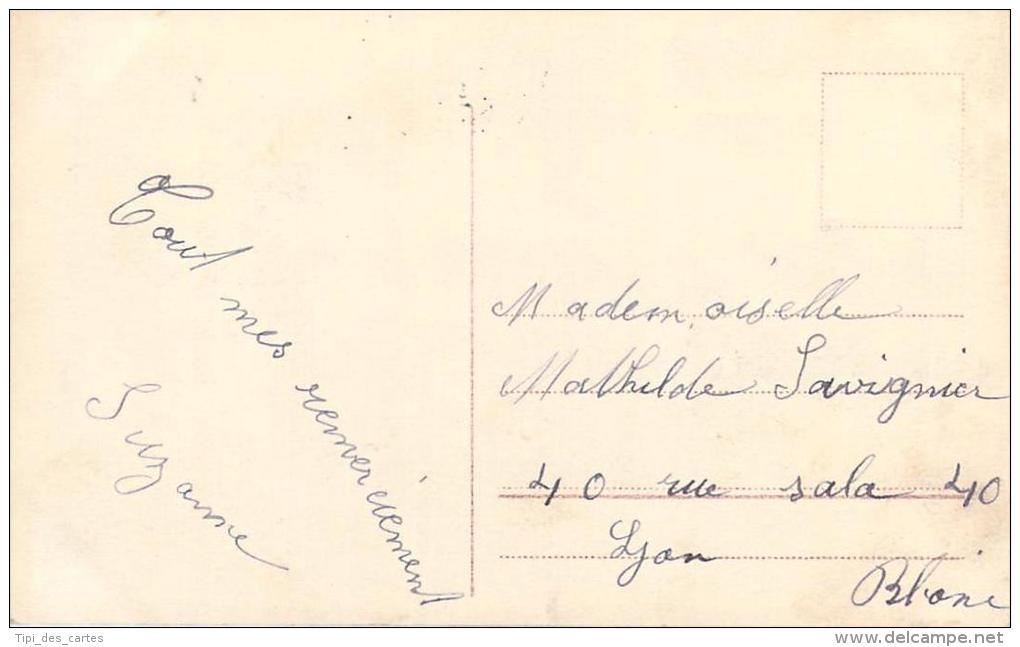 Tout mes remerciement
Suzanne
Mademoiselle
Mathilde Savignier
40 rue sala 40
Lyon
Rhone
Tipi_des_cartes
www.delcampe.net